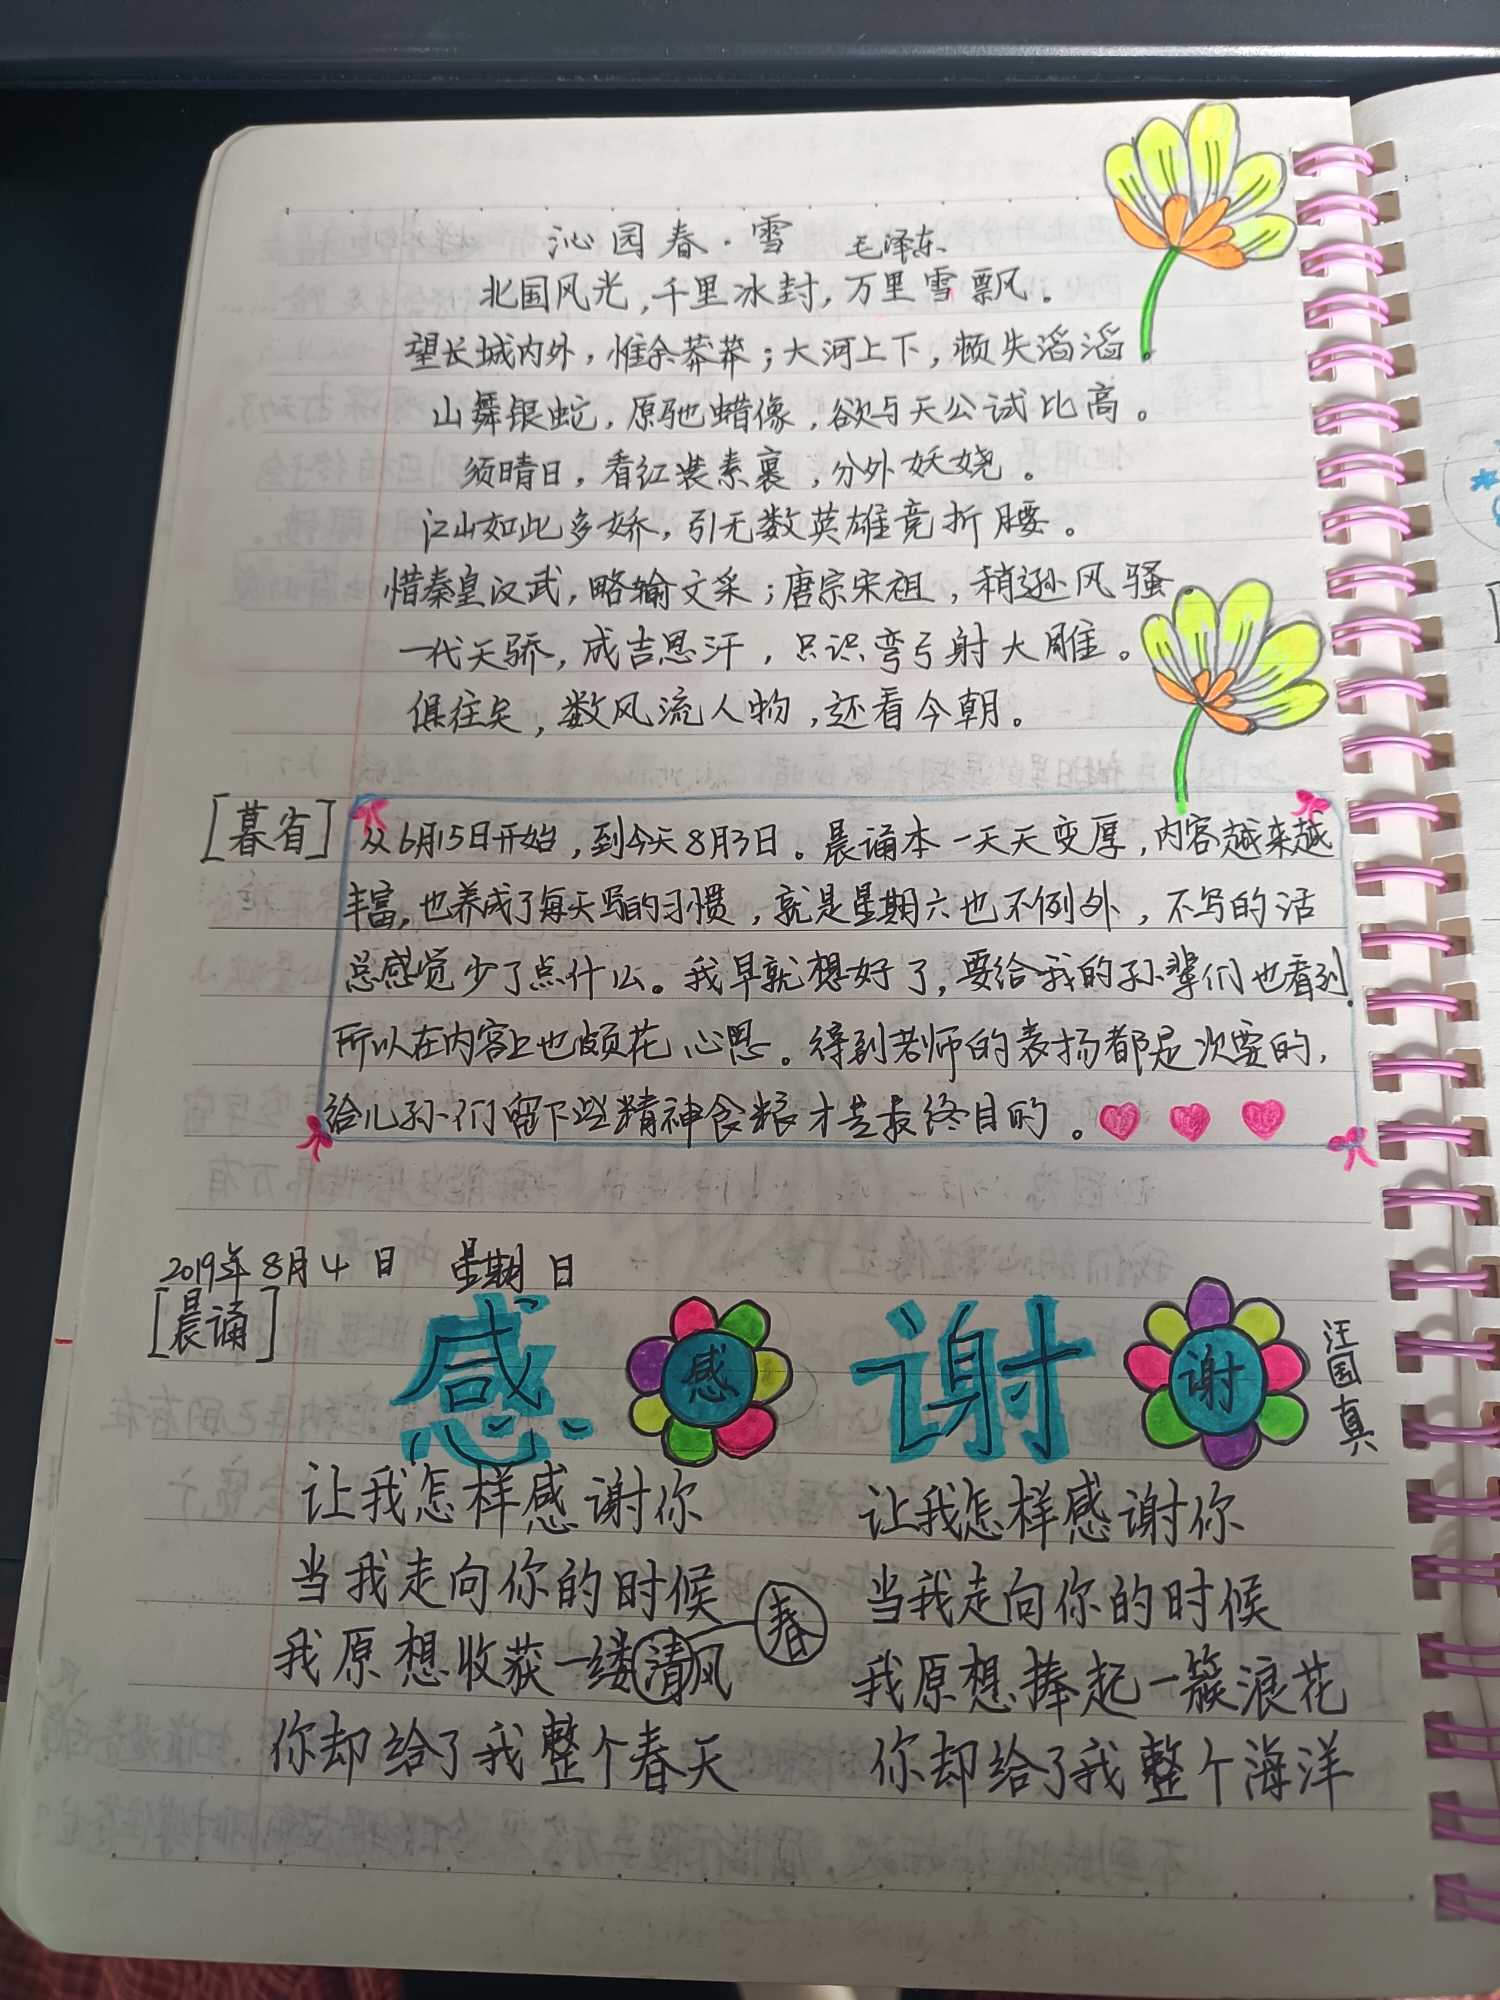 沁园春·雪 毛泽东
北国风光,千里冰封,万里雪飘。
望长城内外,惟余莽莽;大河上下,顿失滔滔。
山舞银蛇,原驰蜡像,欲与天公试比高。
须晴日,看红装素裹,分外妖娆。
江山如此多娇,引无数英雄竞折腰。
惜秦皇汉武,略输文采;唐宗宋祖,稍逊风骚
一代天骄,成吉思汗,只识弯弓射大雕。
俱往矣,数风流人物,还看今朝。
[暮省] 从6月15日开始,到今天8月3日。晨诵本一天天变厚,内容越来越
丰富,也养成了每天写的习惯,就是星期六也不例外,不写的话
总感觉少了点什么。我早就想好了,要给我的孙辈们也看到,
所以在内容上也颇花心思。得到老师的表扬都是次要的,
给儿孙们留下些精神食粮才是最终目的。
2019年8月4日 星期日
[晨诵] 感 感 谢 谢 汪国真
让我怎样感谢你
当我走向你的时候
我原想收获一缕清风
春
你却给了我整个春天
让我怎样感谢你
当我走向你的时候
我原想捧起一簇浪花
你却给了我整个海洋